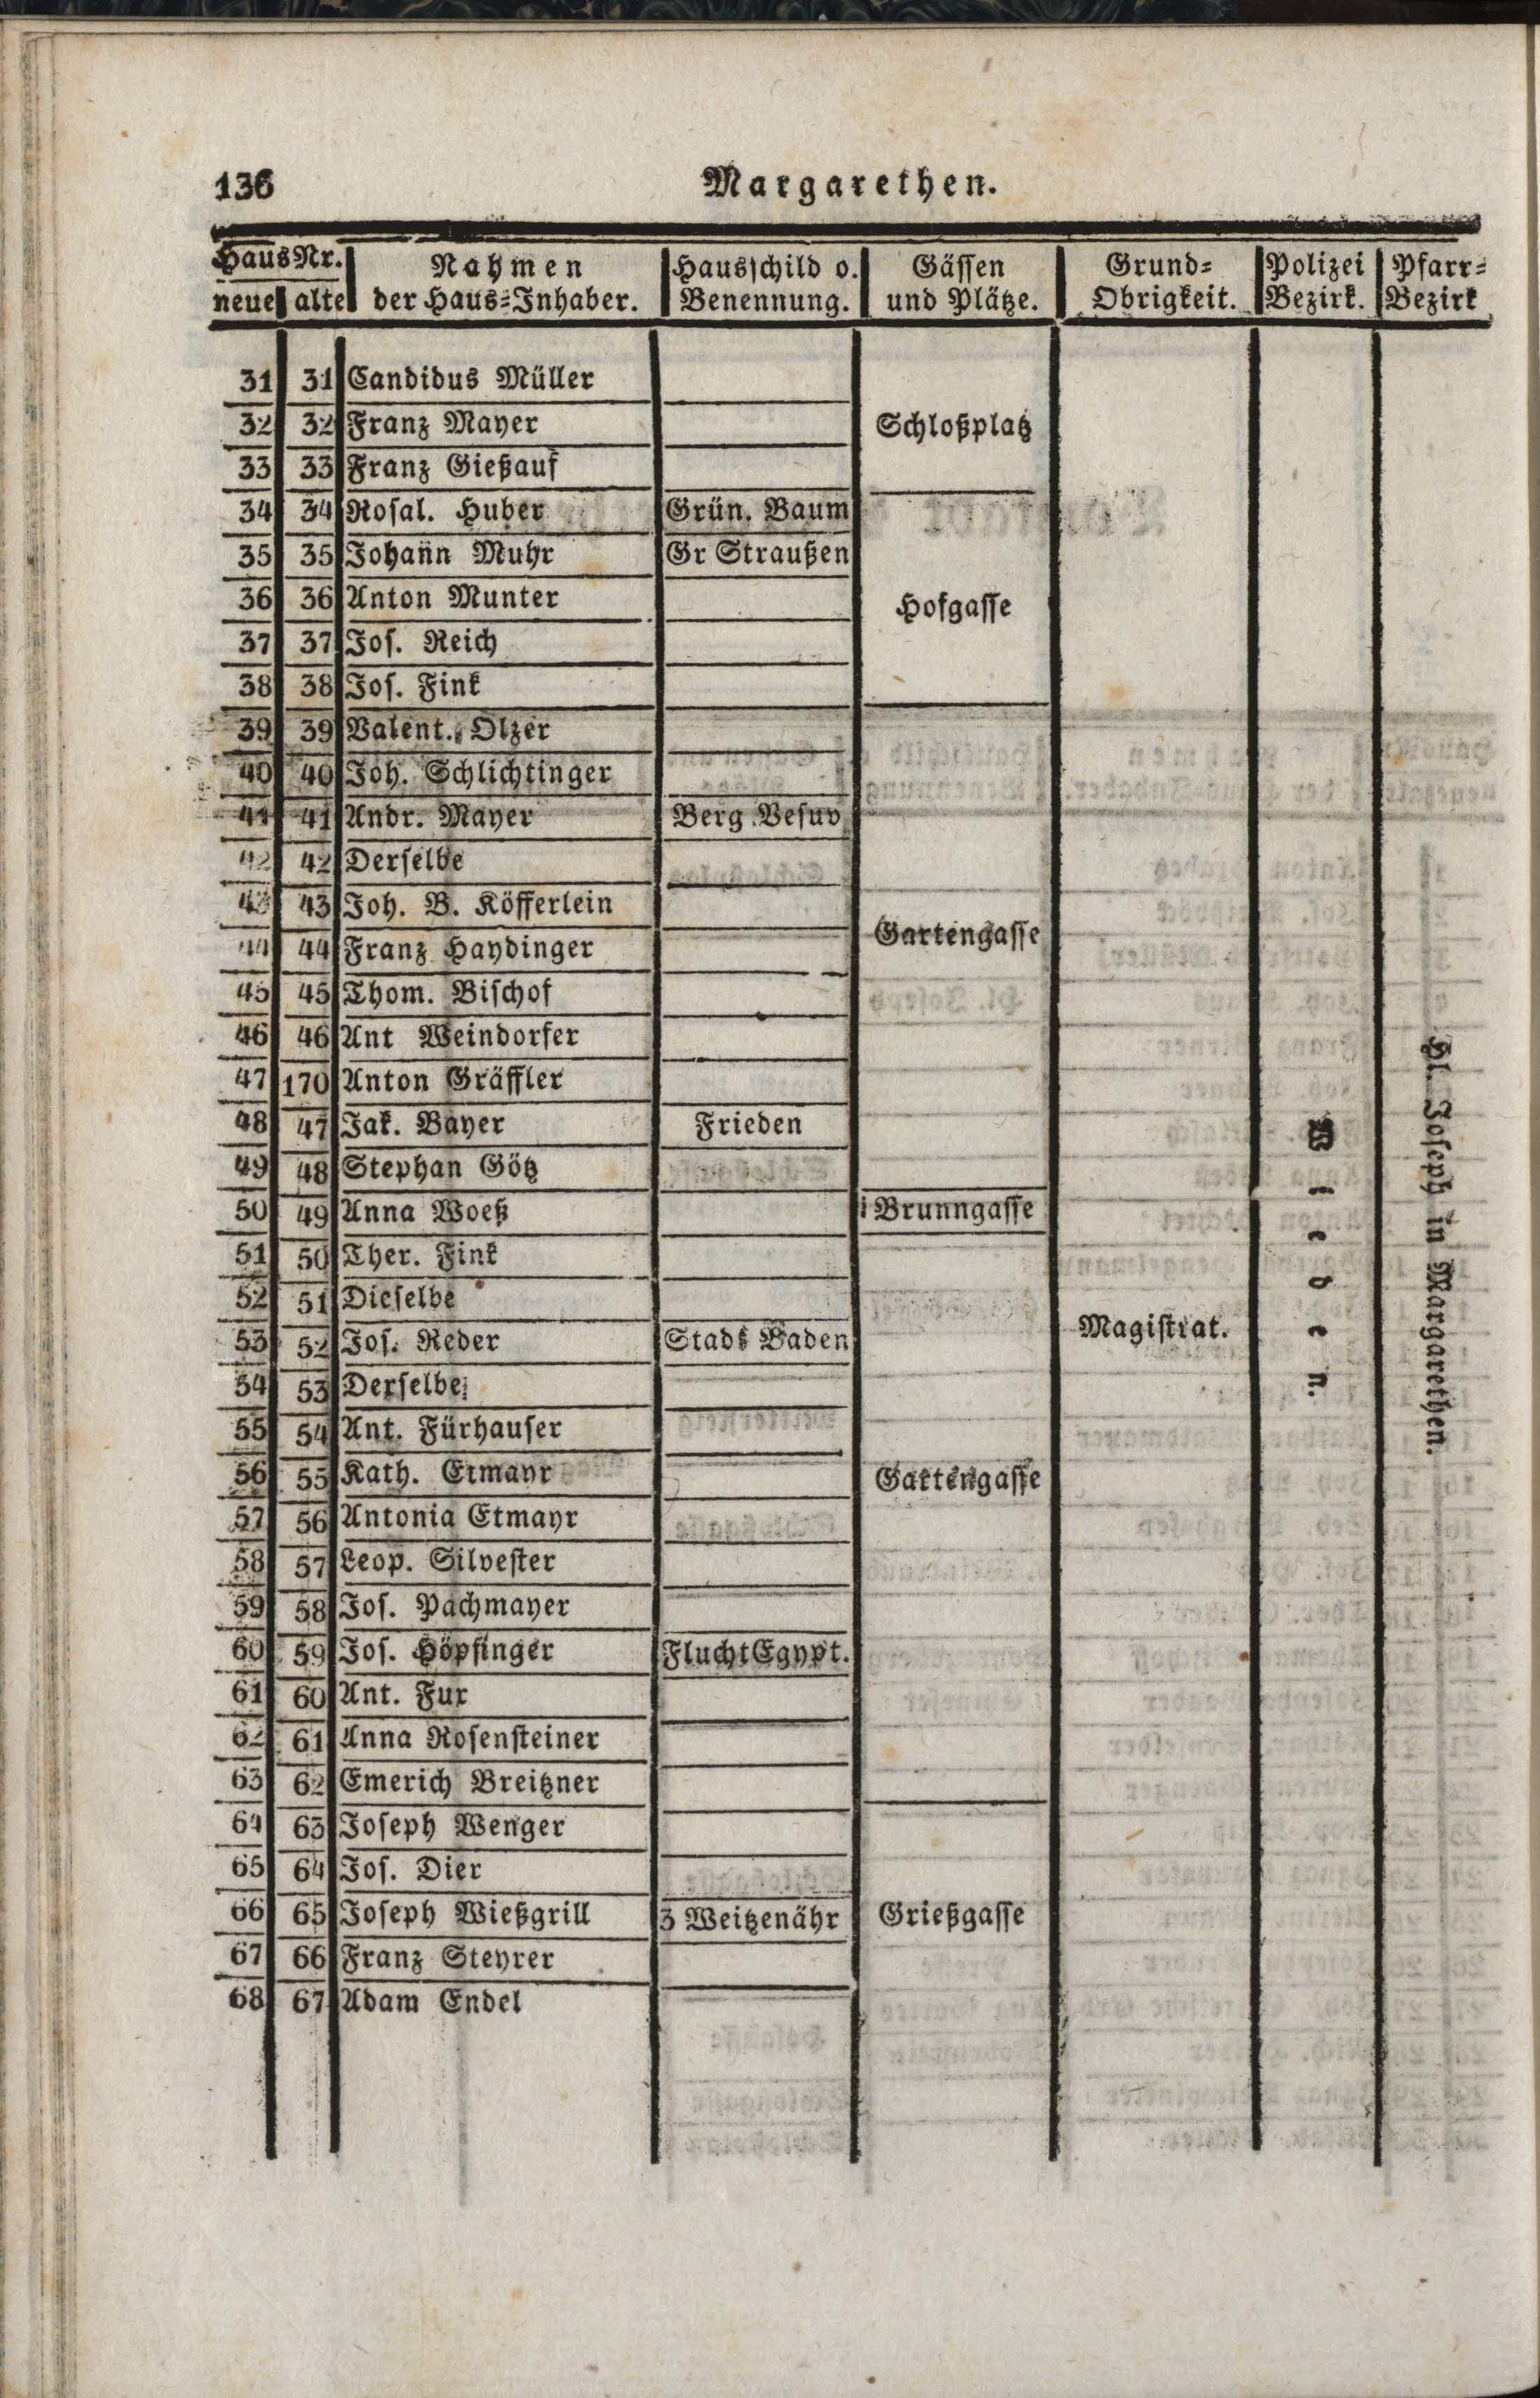 136 Margarethen.
Haus Nr. Nahmen Hausschild o. Gässen Grund- Polizei Pfarr-
neue alte der Haus-Inhaber. Benennung. und Plätze. Obrigkeit. Bezirk. Bezirk
31 31 Candidus Müller
32 32 Franz Mayer Schloßplatz
33 33 Franz Gießauf
34 34 Rosal. Huber Grün. Baum
35 35 Johann Muhr Gr Straußen
36 36 Anton Munter Hofgasse
37 37 Jos. Reich
38 38 Jos. Fink
39 39 Valent. Olzer
40 40 Joh. Schlichtinger
41 41 Andr. Mayer Berg Vesuv
42 42 Derselbe
43 43 Joh. B. Köfferlein
44 44 Franz Haydinger Gartengasse
45 45 Thom. Bischof
46 46 Ant Weindorfer
47 170 Anton Gräffler
48 47 Jak. Bayer Frieden
49 48 Stephan Götz
50 49 Anna Woeß Brunngasse
51 50 Ther. Fink
52 51 Dieselbe
53 52 Jos. Reder Stadt Baden Magistrat. Wieden. Hl. Joseph in Margarethen.
54 53 Derselbe
55 54 Ant. Fürhauser
56 55 Kath. Etmayr Gartengasse
57 56 Antonia Etmayr
58 57 Leop. Silvester
59 58 Jos. Pachmayer
60 59 Jos. Höpfinger Flucht Egypt.
61 60 Ant. Fux
62 61 Anna Rosensteiner
63 62 Emerich Breitzner
64 63 Joseph Wenger
65 64 Jos. Dier
66 65 Joseph Wießgrill 3 Weitzenähr Grießgasse
67 66 Franz Steyrer
68 67 Adam Endel